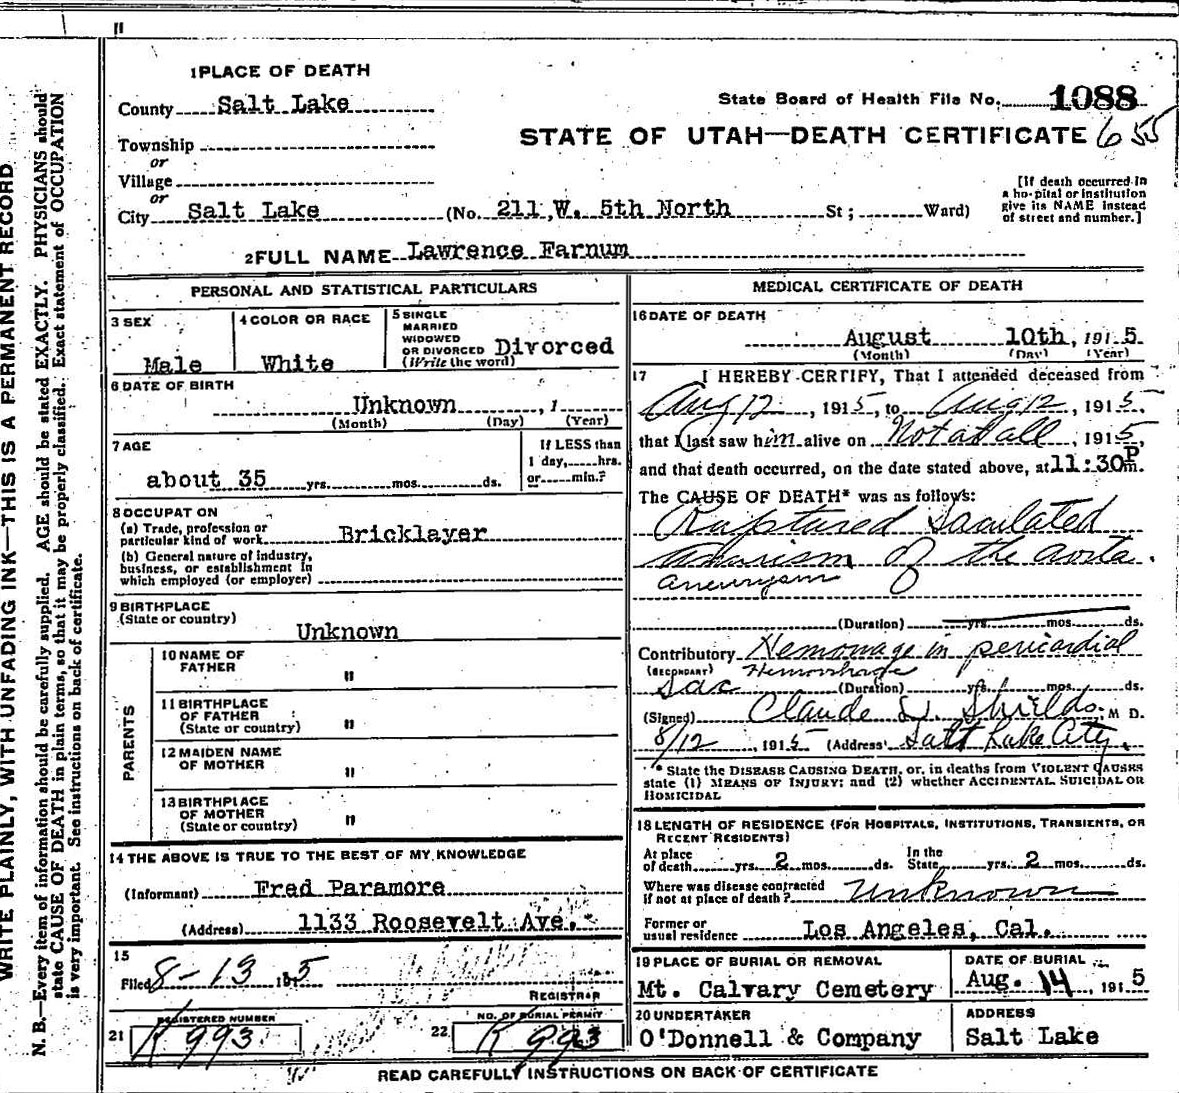 WRITE PLAINLY, WITH UNFADING INK—THIS IS A PERMANENT RECORD
N. B.—Every item of information should be carefully supplied. AGE should be stated EXACTLY. PHYSICIANS should
state CAUSE OF DEATH in plain terms, so that it may be properly classified. Exact statement of OCCUPATION
is very important. See instructions on back of certificate.
1 PLACE OF DEATH
County Salt Lake
State Board of Health File No. 1088
Township
STATE OF UTAH—DEATH CERTIFICATE 655
or
Village
or
City Salt Lake (No. 211 W. 5th North St; Ward)
[If death occurred in
a hospital or institution
give its NAME instead
of street and number.]
2 FULL NAME Lawrence Farnum
PERSONAL AND STATISTICAL PARTICULARS
3 SEX
Male
4 COLOR OR RACE
White
5 SINGLE
MARRIED
WIDOWED
OR DIVORCED Divorced
(Write the word)
6 DATE OF BIRTH
Unknown , 1
(Month) (Day) (Year)
7 AGE
about 35 yrs. mos. ds.
If LESS than
1 day, hrs.
or min.?
8 OCCUPAT ON
(a) Trade, profession or
particular kind of work Bricklayer
(b) General nature of industry,
business, or establishment in
which employed (or employer)
9 BIRTHPLACE
(State or country)
Unknown
PARENTS
10 NAME OF
FATHER "
11 BIRTHPLACE
OF FATHER "
(State or country)
12 MAIDEN NAME
OF MOTHER "
13 BIRTHPLACE
OF MOTHER "
(State or country)
14 THE ABOVE IS TRUE TO THE BEST OF MY KNOWLEDGE
(Informant) Fred Paramore
(Address) 1133 Roosevelt Ave.
15
Filed 8-13 1915
REGISTRAR
21 REGISTERED NUMBER
K 993
22 NO. OF BURIAL PERMIT
K 993
MEDICAL CERTIFICATE OF DEATH
16 DATE OF DEATH
August 10th, 1915
(Month) (Day) (Year)
17 I HEREBY CERTIFY, That I attended deceased from
Aug 12, 1915, to Aug 12, 1915,
that I last saw him alive on Not at all, 1915,
and that death occurred, on the date stated above, at 11:30 P m.
The CAUSE OF DEATH* was as follows:
Ruptured Saculated
anurism of the aorta.
aneurysm
(Duration) yrs. mos. ds.
Contributory Hemorrage in pericardial
(SECONDARY) Hemorrhage
sac (Duration) yrs. mos. ds.
(Signed) Claude L. Shields M D.
8/12, 1915 (Address) Salt Lake City
* State the DISEASE CAUSING DEATH, or, in deaths from VIOLENT CAUSES
state (1) MEANS OF INJURY; and (2) whether ACCIDENTAL SUICIDAL OR
HOMICIDAL
18 LENGTH OF RESIDENCE (FOR HOSPITALS, INSTITUTIONS, TRANSIENTS, OR
RECENT RESIDENTS)
At place
of death yrs. 2 mos. ds.
In the
State yrs. 2 mos. ds.
Where was disease contracted
if not at place of death? Unknown
Former or
usual residence Los Angeles, Cal.
19 PLACE OF BURIAL OR REMOVAL
Mt. Calvary Cemetery
DATE OF BURIAL
Aug. 14, 1915
20 UNDERTAKER
O'Donnell & Company
ADDRESS
Salt Lake
READ CAREFULLY INSTRUCTIONS ON BACK OF CERTIFICATE